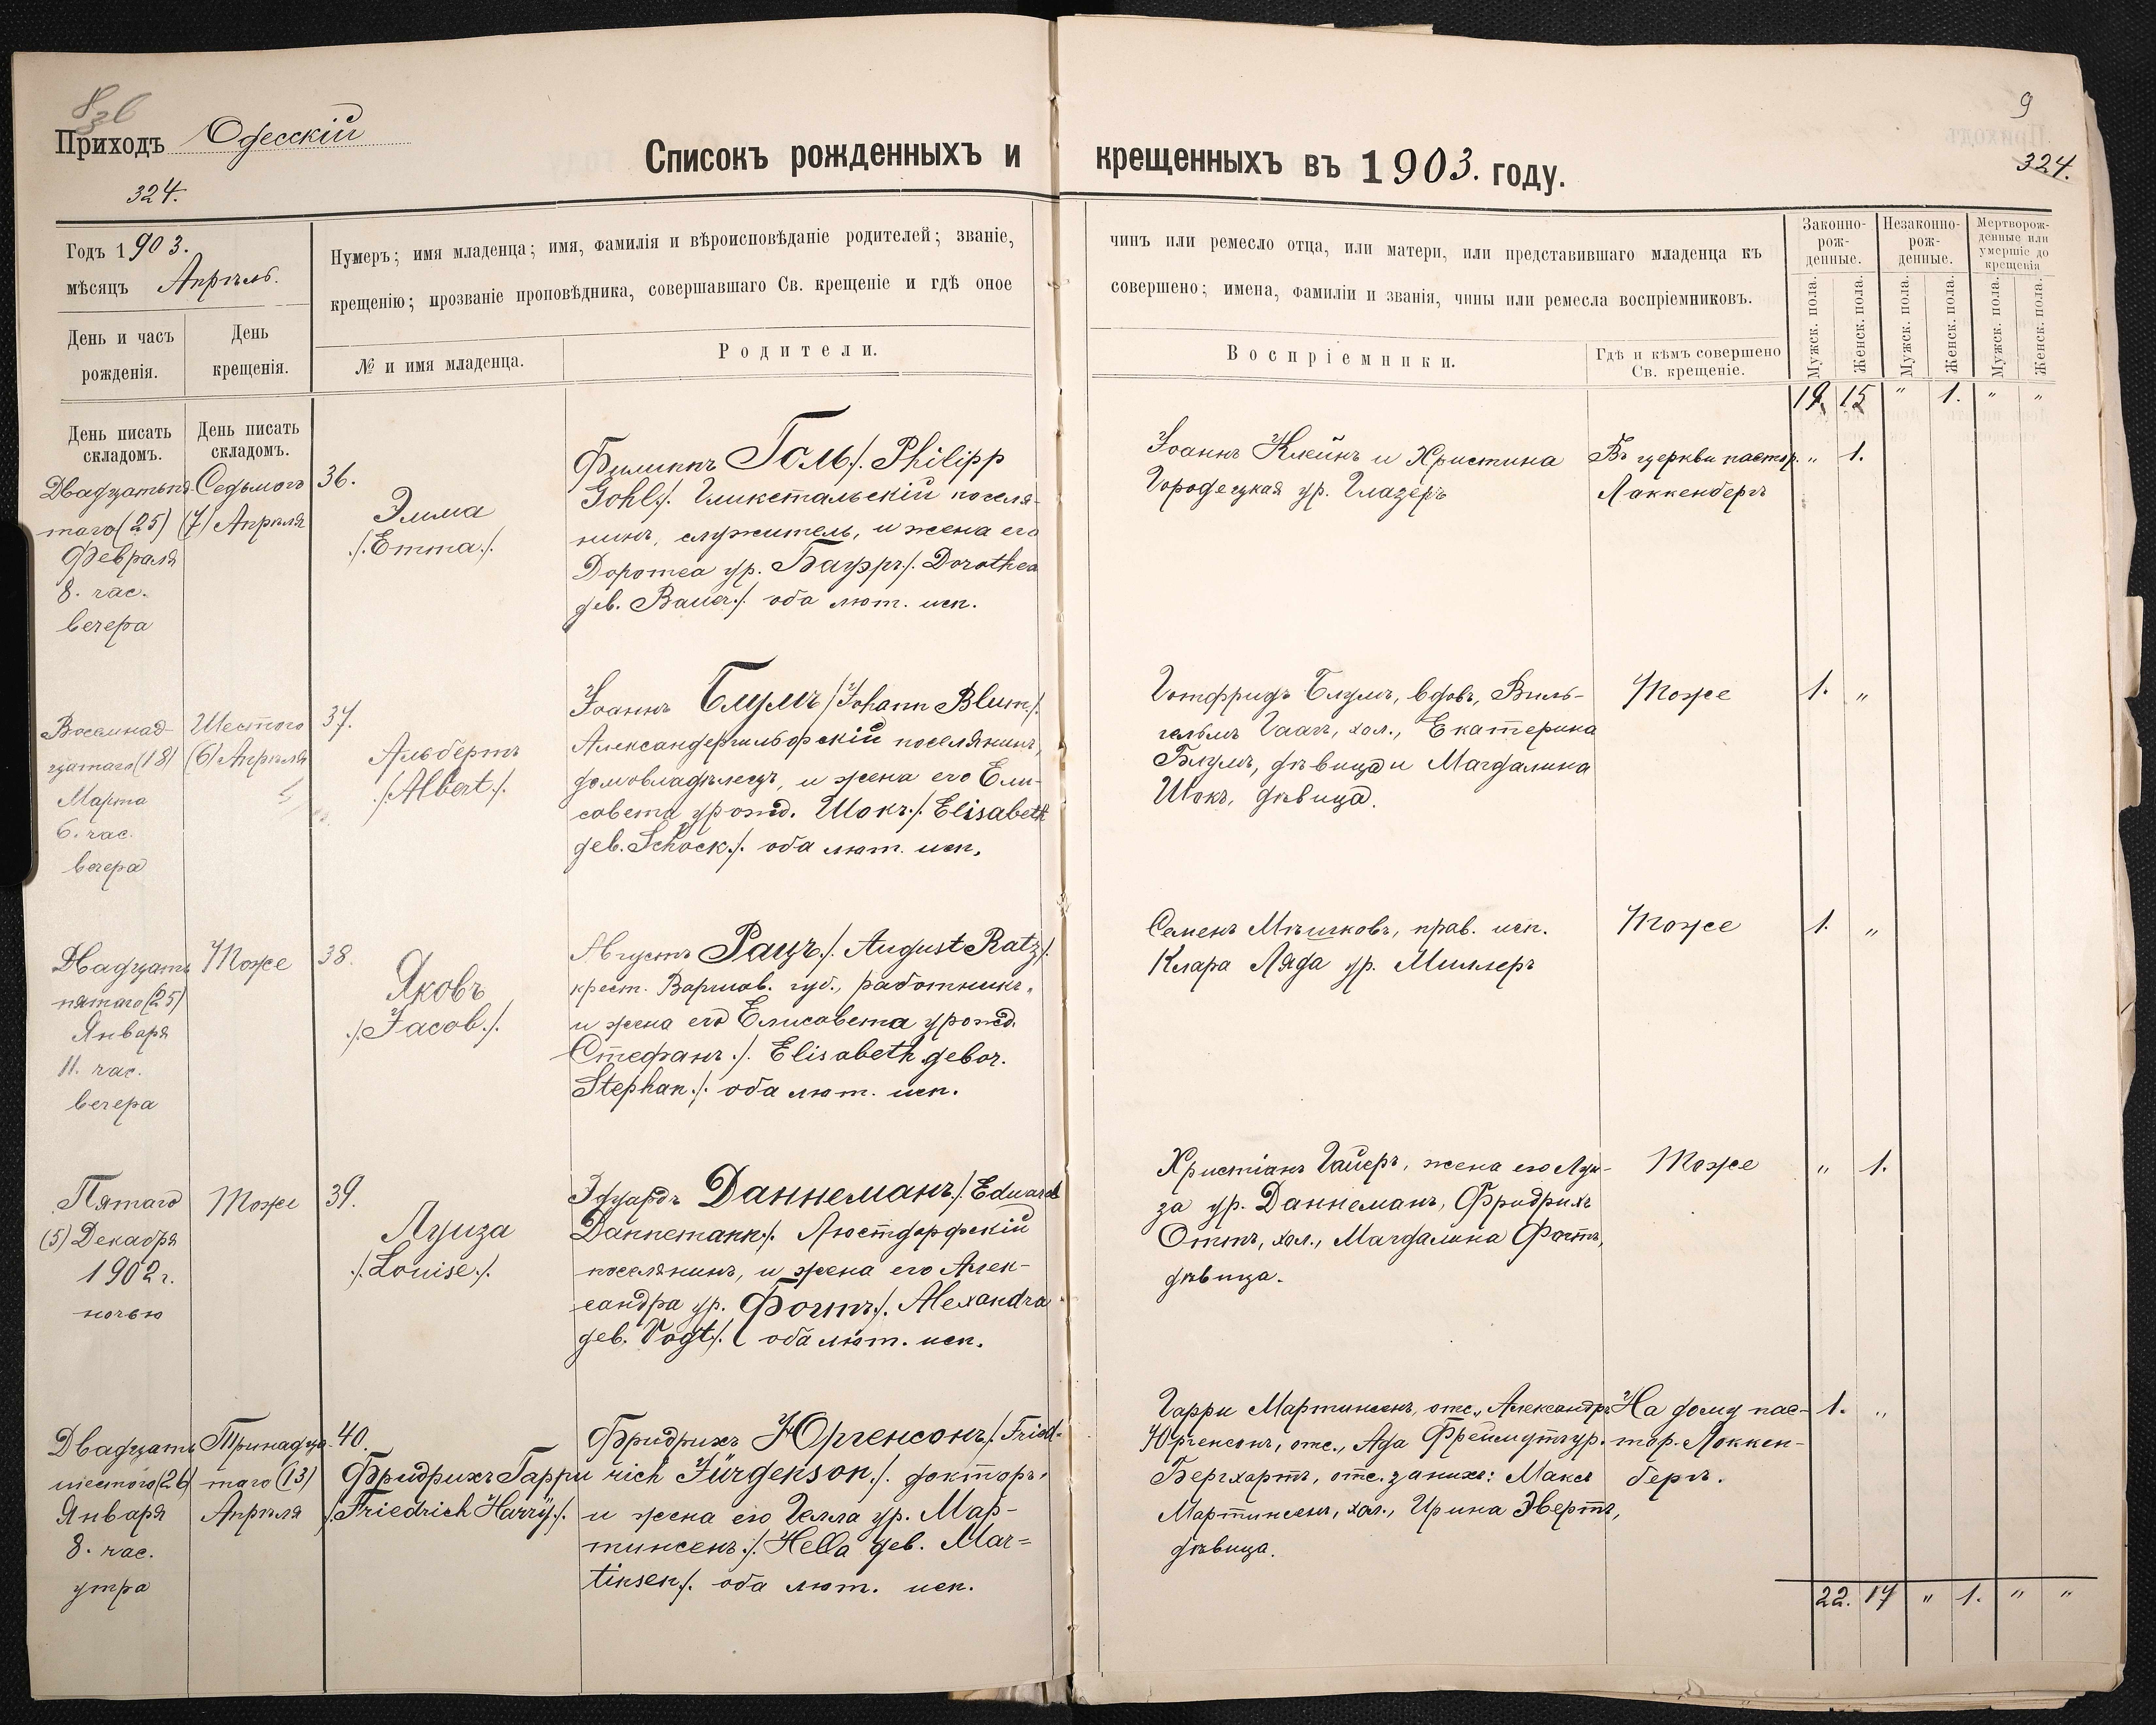 Приходъ Одесскій
324.
Списокъ рожденныхъ и крещенныхъ въ 1903. году.
9
324.
Годъ 1903.
мѣсяцъ Апрѣль.
День и часъ рожденія.
День крещенія.
Нумеръ; имя младенца; имя, фамилія и вѣроисповѣданіе родителей; званіе,
крещенію; прозваніе проповѣдника, совершавшаго Св. крещеніе и гдѣ оное
№ и имя младенца.
Родители.
чинъ или ремесло отца, или матери, или представившаго младенца къ
совершено; имена, фамиліи и званія, чины или ремесла воспріемниковъ.
Воспріемники.
Гдѣ и кѣмъ совершено
Св. крещеніе.
Законно-
рож-
денные.
Незаконно-
рож-
денные.
Мертворож-
денные или
умершіе до
крещенія
Мужск. пола.
Женск. пола.
Мужск. пола.
Женск. пола.
Мужск. пола.
Женск. пола.
19. 15 " 1. " "
День писать
складомъ.
День писать
складомъ.
Двадцатьпя-
таго (25)
Февраля
8. час.
вечера
Седьмого
(7) Апрѣля
36.
Эмма
/.Emma./.
Филиппъ Голь/. Philipp
Gohl./. Гликстальскій поселя-
нинъ, служитель, и жена его
Доротеа ур. Бауэръ/. Dorothea
geb. Bauer./. оба лют. исп.
Іоаннъ Клейнъ и Христина
Городецкая ур. Глазеръ
Въ церкви пастор.
Лаккенбергъ
" 1.
Восемнад-
цатаго (18)
Марта
6. час.
вечера
Шестого
(6) Апрѣля
37.
Альбертъ
./Albert./.
Іоаннъ Блумъ /Johann Blum/.
Александергильфскій поселянинъ,
домовладѣлецъ, и жена его Ели-
савета урожд. Шокъ./. Elisabeth
geb. Schock./. оба лют. исп.
Готфридъ Блумъ, вдов., Виль-
гельмъ Гаагъ, хол., Екатерина
Блумъ, дѣвица и Магдалина
Шокъ, дѣвица.
Тоже
1. "
Двадцать
пятаго (25)
Января
11. час.
вечера
Тоже
38.
Яковъ
./Jacob./.
Августъ Рацъ./. August Ratz/.
крест. Варшав. губ., работникъ,
и жена его Елисавета урожд.
Стефанъ./. Elisabeth gebor.
Stephan./. оба лют. исп.
Семенъ Мѣшковъ, прав. исп.
Клара Ляда ур. Миллеръ
Тоже
1. "
Пятаго
(5) Декабря
1902 г.
ночью
Тоже
39.
Луиза
./Louise./.
Эдуардъ Даннеманъ./. Eduard
Dannemann./. Люстдорфскій
поселянинъ, и жена его Алек-
сандра ур. Фогтъ./. Alexandra
geb. Vogt./. оба лют. исп.
Христіанъ Гайеръ, жена его Луи-
за ур. Даннеманъ, Фридрихъ
Оттъ, хол., Магдалина Фогтъ,
дѣвица.
Тоже
" 1.
Двадцать
шестого (26)
Января
8. час.
утра
Тринадца-
таго (13)
Апрѣля
40.
Фридрихъ Гарри
/Friedrich Harry./.
Фридрихъ Юргенсонъ/. Fried-
rich Jürgenson./. докторъ,
и жена его Гелла ур. Мар-
тинсенъ./. Hella geb. Mar=
tinsen./. оба лют. исп.
Гарри Мартинсенъ, отс., Александръ
Юргенсонъ, отс., Ада Фреймутъ ур.
Бергхартъ, отс. за нихъ: Макса
Мартинсенъ, хол., Ирина Эвертъ,
дѣвица.
На дому пас-
тор. Локкен-
бергъ.
1. "
22. 17 " 1. " "